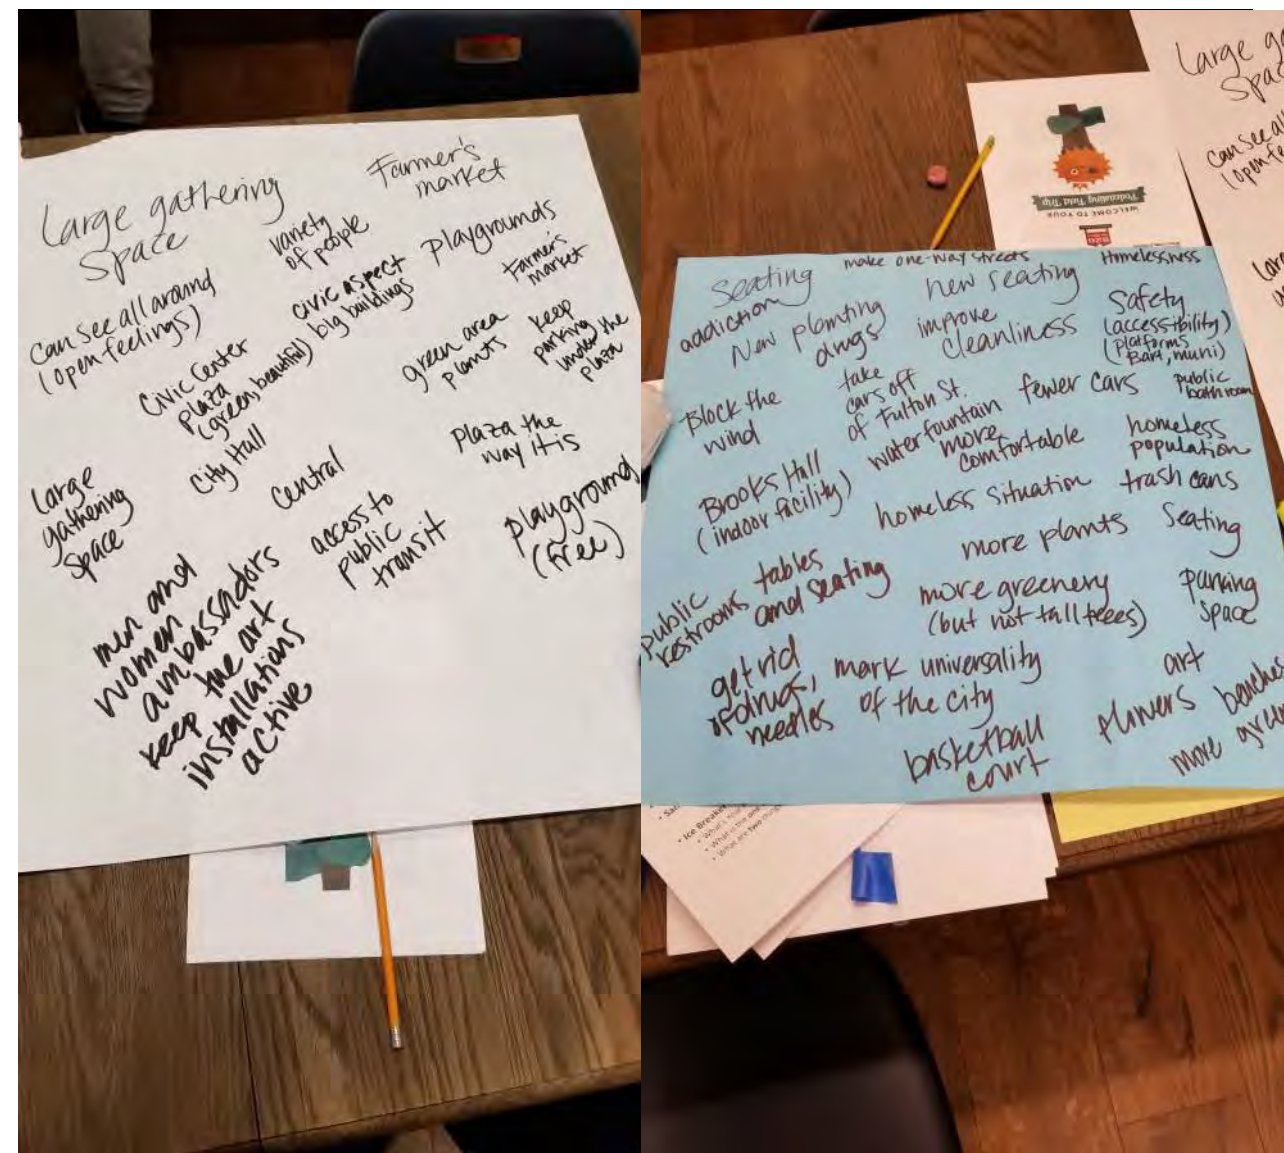 Large gathering
Space
Farmer's
market
variety
of people
playgrounds
Farmer's
market
can see all around
(open feelings)
civic aspect
big buildings
Civic Center
plaza
(green, beautiful)
green area
plants
keep
parking
under the
plaza
City Hall
plaza the
way it is
Large
gathering
space
Central
access to
public
transit
playground
(free)
men and
women
ambassadors
keep the art
installations
active
Large
Spa
can see all
(open fe
WELCOME TO YOUR
Podcasting Field Trip
Seating
make one-way streets
new seating
Homelessness
addiction
New planting
drugs
improve
cleanliness
Safety
(accessibility)
(platforms
Bart, muni)
Block the
wind
take
cars off
of Fulton St.
fewer cars
public
bathroom
water fountain
more
comfortable
homeless
population
Brooks Hall
(indoor facility)
homeless situation
trash cans
more plants
Seating
public
restrooms
tables
and seating
more greenery
(but not tall trees)
parking
space
get rid
of drugs,
needles
mark universality
of the city
art
flowers
benches
more green
basketball
court
• Ice Breaker